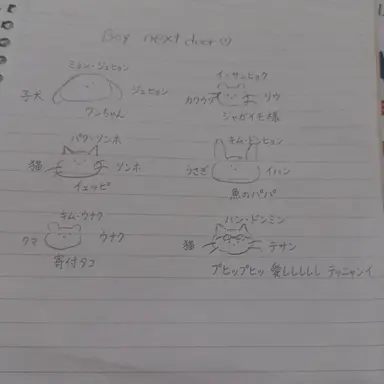 Boy next door
ミョン・ジェヒョン
子犬 ジェヒョン
ワンちゃん
イ・サンヒョク
カワウソ リウ
ジャガイモ様
パク・ソンホ
猫 ソンホ
イェッピ
キム・ドンヒョン
うさぎ イハン
魚のパパ
キム・ウナク
クマ ウナク
寄付タコ
ハン・ドンミン
猫 テサン
プピップピッ 愛ししししし テッニャンイ